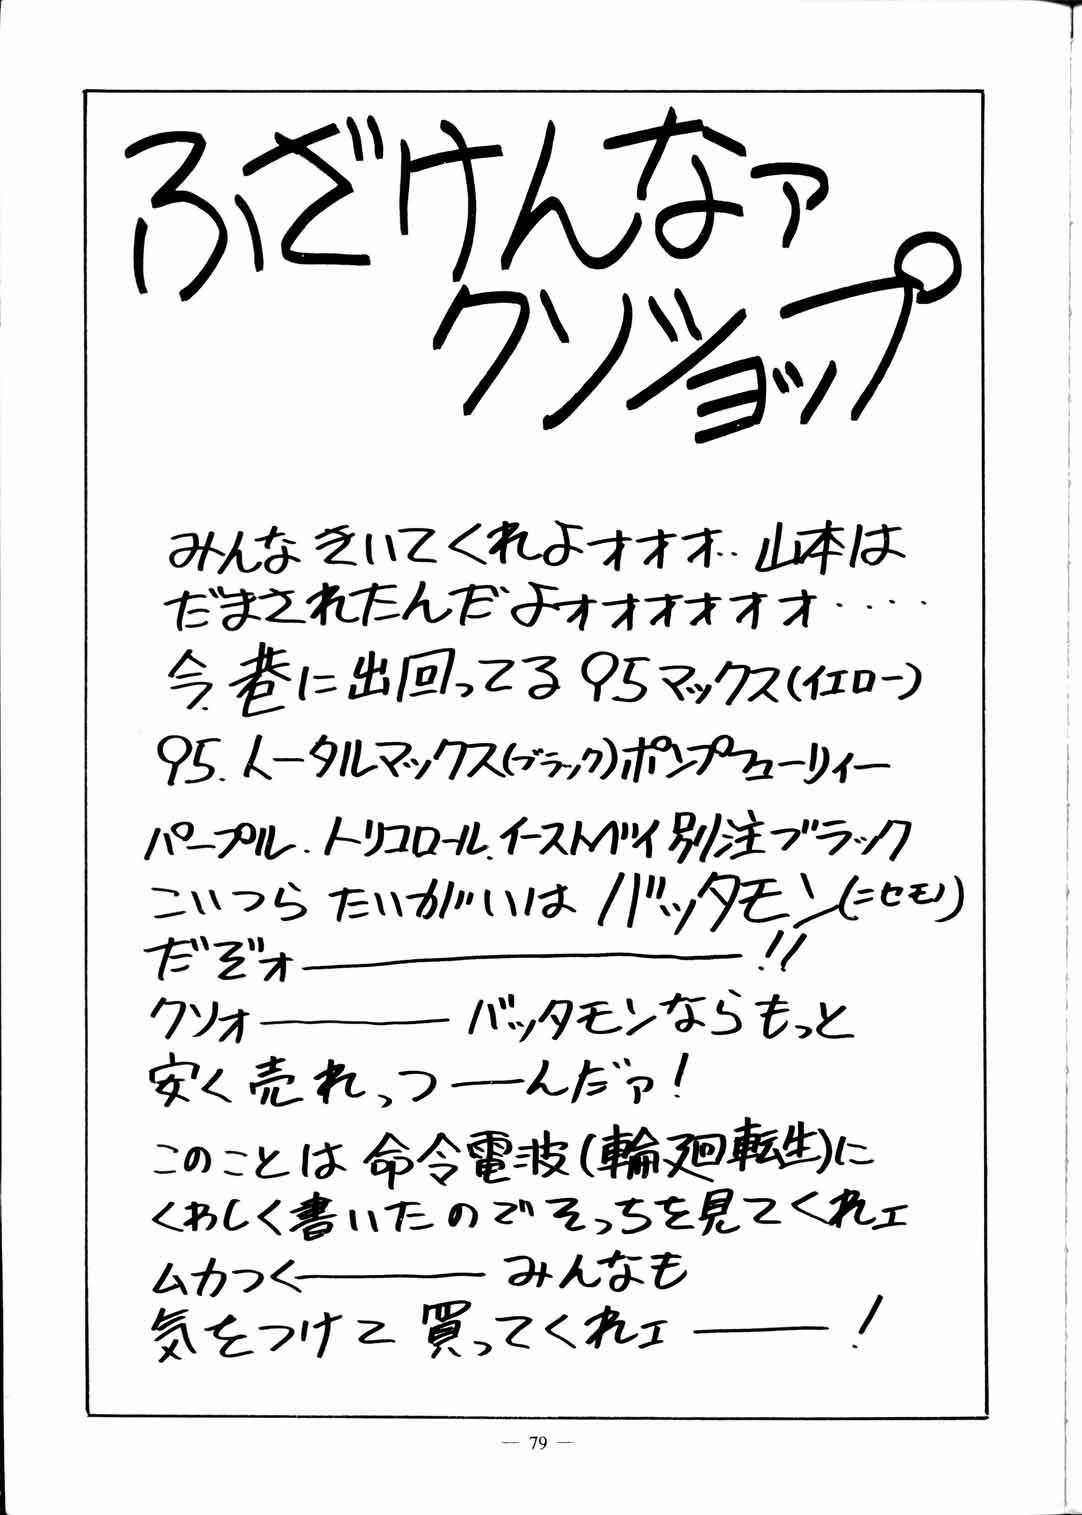 ふざけんなァ
クソショップ
みんなきいてくれよォオオ‥山本は
だまされたんだよォォオオオオ‥‥
今、巷に出回ってる95マックス(イエロー)
95.トータルマックス(ブラック)ポンプフューリィー
パープル.トリコロール.イーストベイ別注ブラック
こいつらたいがいはバッタモン(ニセモノ)
だぞォ────!!
クソォ───バッタモンならもっと
安く売れっつ──んだァ!
このことは命令電波(輪廻転生)に
くわしく書いたのでそっちを見てくれェ
ムカつく───みんなも
気をつけて買ってくれェ───!
— 79 —